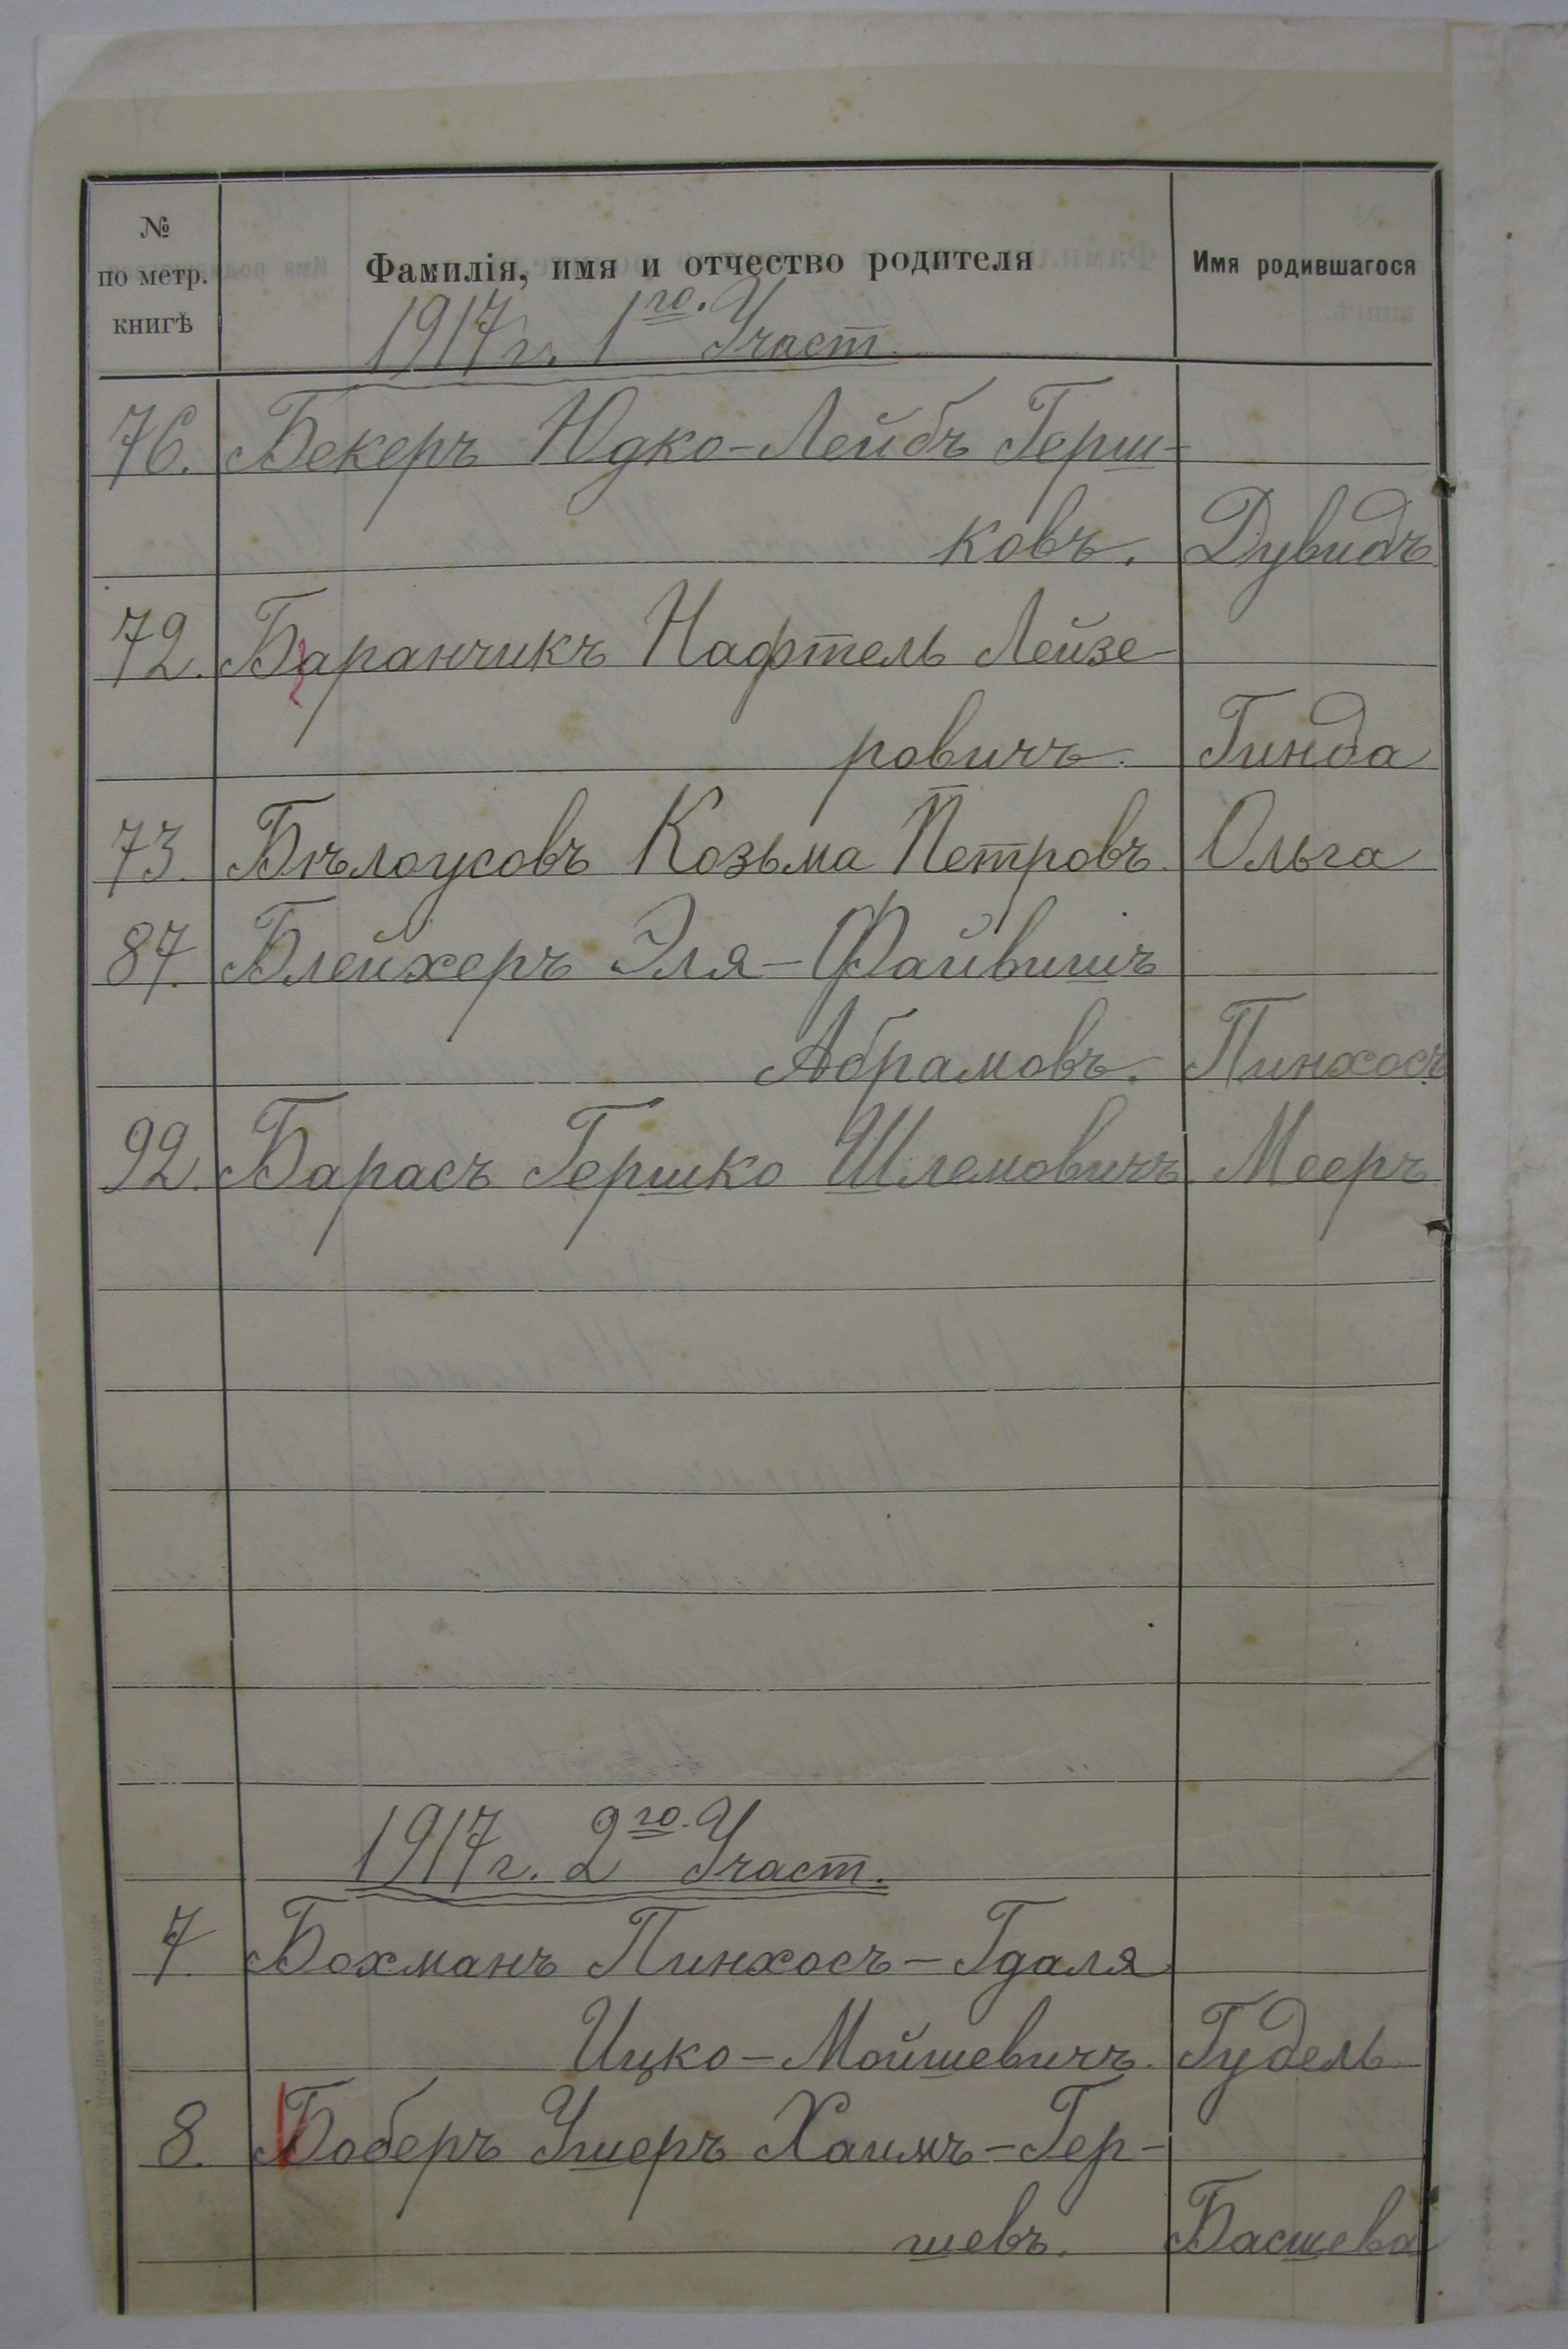 № по метр. книгѣ Фамилія, имя и отчество родителя Имя родившагося
1917 г. 1го. Участ.
76. Бекеръ Юдко-Лейбъ Герш-
ковъ. Дувидъ
72. Баранчикъ Нафтель Лейзе-
ровичъ. Гинда
73. Бѣлоусовъ Козьма Петровъ. Ольга
87. Блейхеръ Эля-Файвишъ
Абрамовъ. Пинхосъ
92. Барасъ Гершко Шлемовичъ. Мееръ
1917 г. 2го. Участ.
7. Бохманъ Пинхосъ-Гдаля
Ицко-Мойшевичъ. Гудель
8. Боберъ Ушеръ Хаимъ-Гер-
шевъ. Басшева